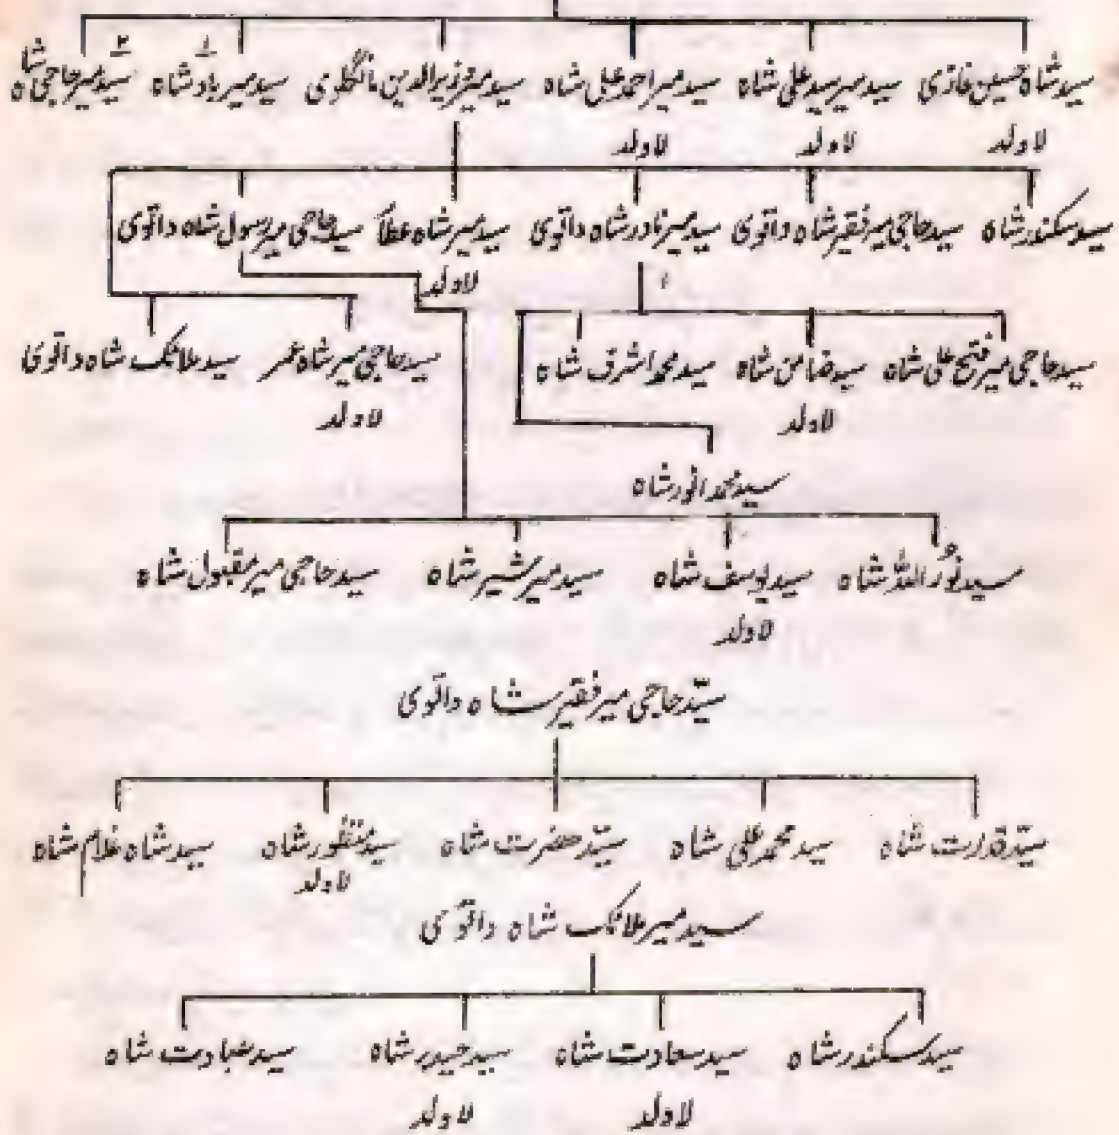 سید شاہ حسین غازی سید میر سید علی شاہ سید میر احمد علی شاہ سید میر وزیر الدین مانگلوی سید میر بادشاہ سید میر حاجی شاہ
لاولد لاولد لاولد
سید سکندر شاہ سید حاجی میر فقیر شاہ داتوی سید میر نادر شاہ داتوی سید میر شاہ عطا سید حاجی میر رسول شاہ داتوی
لاولد
سید حاجی میر فتح علی شاہ سید ضامن شاہ سید محمد اشرف شاہ سید حاجی میر شاہ عمر سید ملائک شاہ داتوی
لاولد لاولد
سید محمد انور شاہ
سید نُور اللہ شاہ سید یوسف شاہ سید میر شبیر شاہ سید حاجی میر مقبول شاہ
لاولد
سیّد حاجی میر فقیر شاہ داتوی
سیّد قدرت شاہ سید محمد علی شاہ سیّد حضرت شاہ سید منظور شاہ سید شاہ غلام شاہ
لاولد
سید میر ملائک شاہ داتوی
سید سکندر شاہ سید سعادت شاہ سید حیدر شاہ سید عبادت شاہ
لاولد لاولد